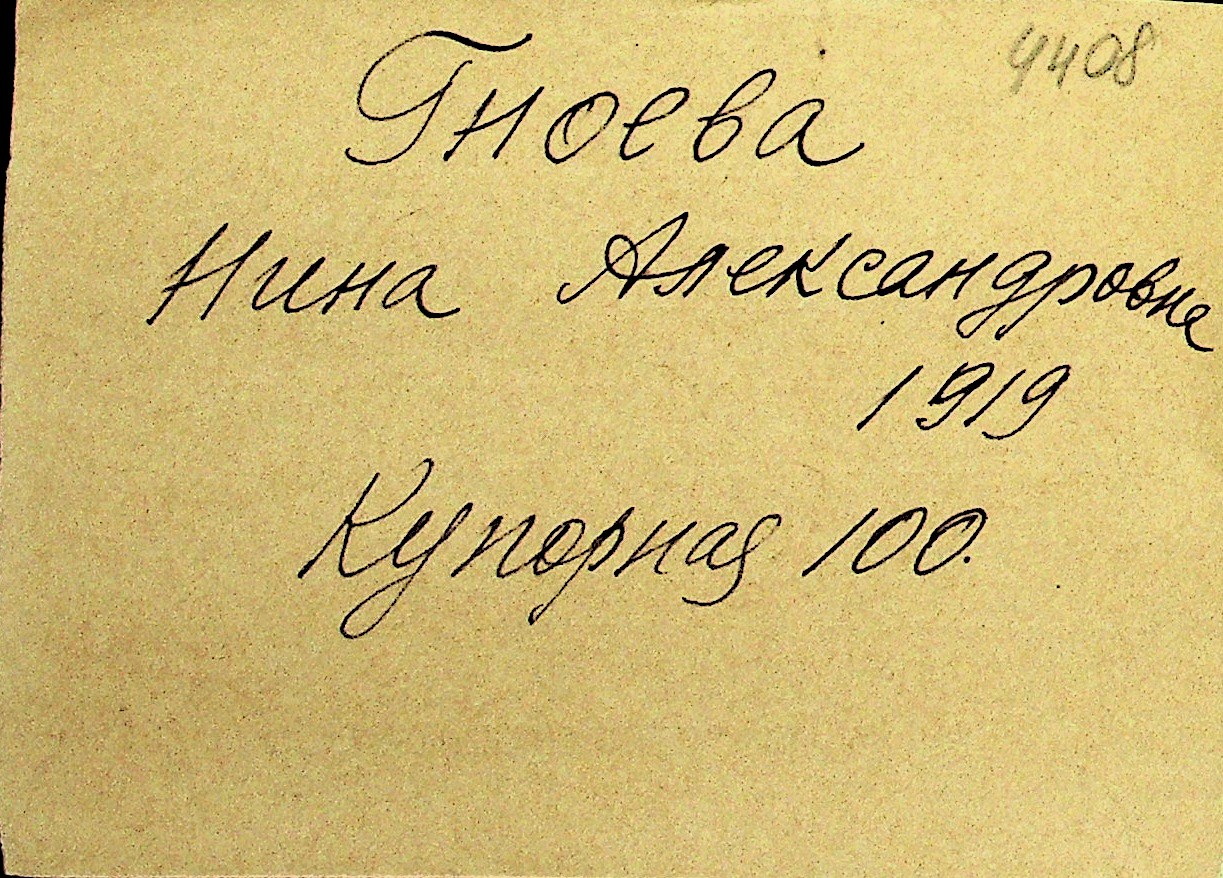 4408
Гноева
Нина Александровна
1919
Купорная 100.